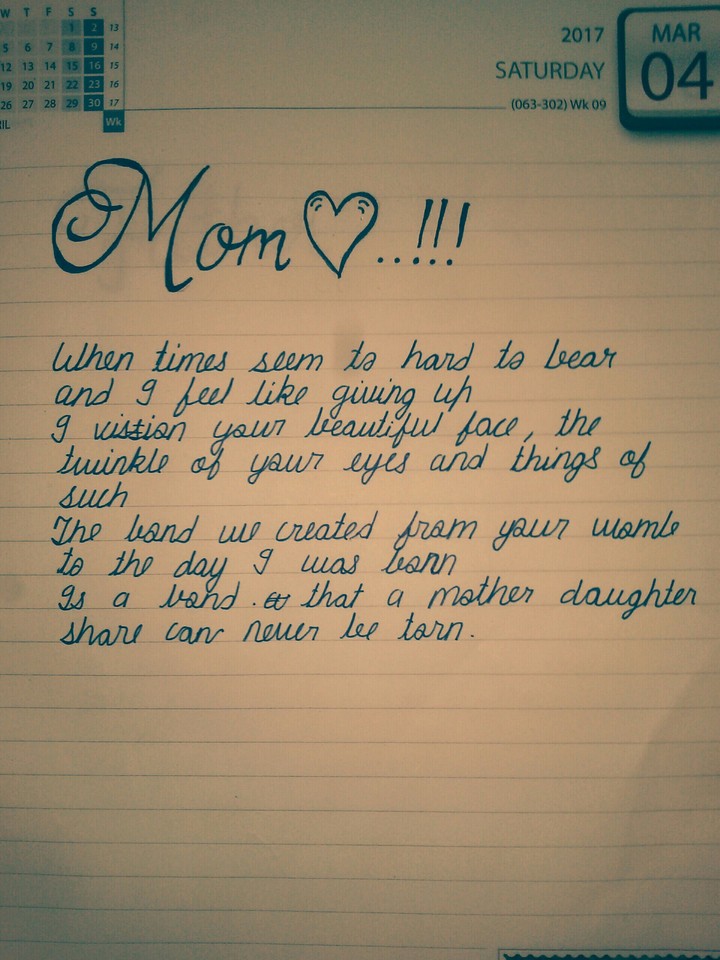 W T F S S
1 2 13
5 6 7 8 9 14
12 13 14 15 16 15
19 20 21 22 23 16
26 27 28 29 30 17
Wk
2017
SATURDAY
(063-302) Wk 09
MAR
04
Mom ♡.....!!!
When times seem to hard to bear
and I feel like giving up
I vistion your beautiful face, the
twinkle of your eyes and things of
such
The bond we created from your womb
to the day I was born
Is a bond . that a mother daughter
share can never be torn.